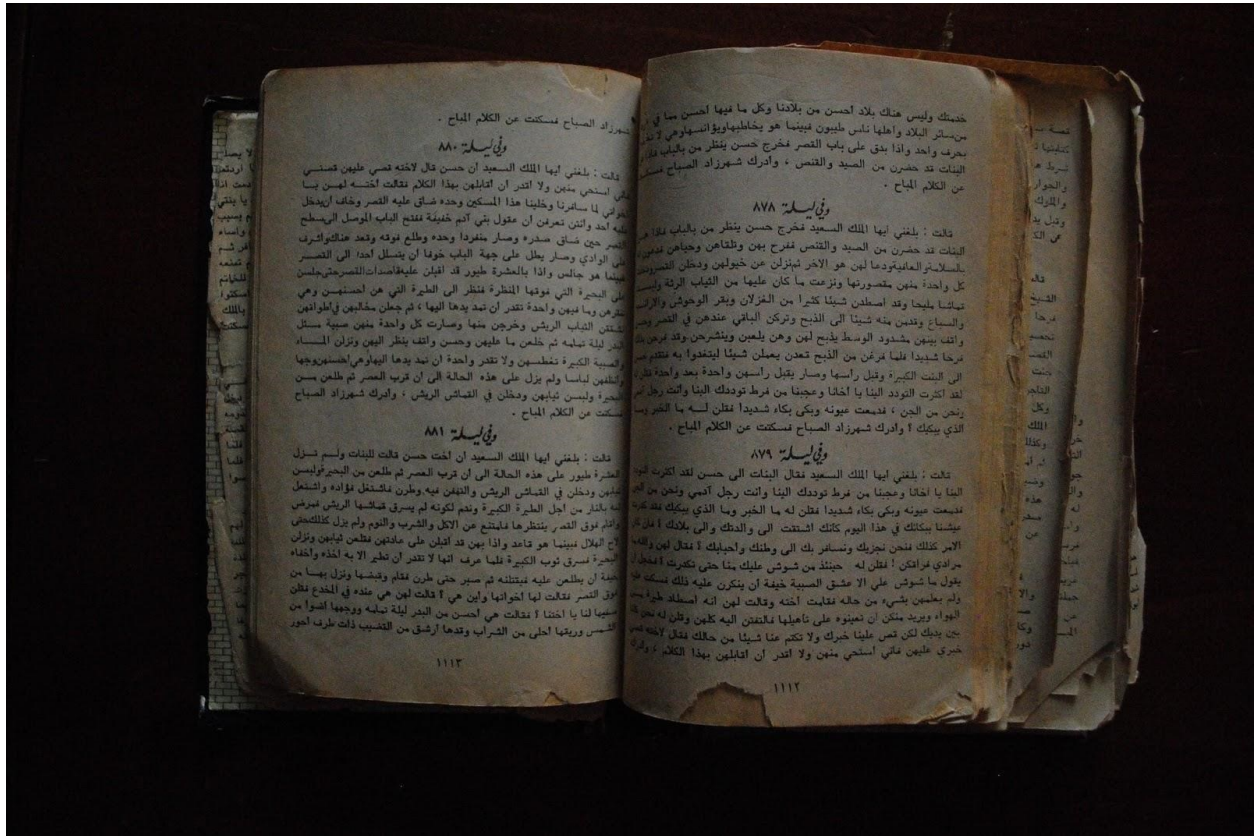 خدمتك وليس هناك بلاد احسن من بلادنا وكل ما فيها احسن مما في
من سائر البلاد واهلها ناس طيبون فبينما هو يخاطبها ويؤانسها وهي لا
بحرف واحد واذا بدق على باب القصر فخرج حسن ينظر من بالباب فاذا
البنات قد حضرن من الصيد والقنص ، وادرك شهرزاد الصباح فسكتت
عن الكلام المباح .
وفي ليلة ٨٧٨
قالت : بلغني ايها الملك السعيد فخرج حسن ينظر من بالباب فاذا
البنات قد حضرن من الصيد والقنص ففرح بهن وتلقاهن وحياهن فدعون
بالسلامة والعافية ودعا لهن هو الاخر ثم نزلن عن خيولهن ودخلن القصر ودخلت
كل واحدة منهن مقصورتها ونزعت ما كان عليها من الثياب الرثة ولبست
قماشا مليحا وقد اصطدن شيئا كثيرا من الغزلان وبقر الوحوش والارانب
والسباع وقدمن منه شيئا الى الذبح وتركن الباقي عندهن في القصر وحسن
واقف بينهن مشدود الوسط يذبح لهن وهن يلعبن وينشرحن وقد فرحن
فرحا شديدا فلما فرغن من الذبح قعدن يعملن شيئا ليتغدوا به فتقدم حسن
الى البنت الكبيرة وقبل راسها وصار يقبل راسهن واحدة بعد واحدة فقلن
لقد اكثرت التودد الينا يا اخانا وعجبنا من فرط توددك الينا وانت رجل
ونحن من الجن ، فدمعت عيونه وبكى بكاء شديدا فقلن لـه ما الخبر وما
الذي يبكيك ؟ وادرك شهرزاد الصباح فسكتت عن الكلام المباح .
وفي ليلة ٨٧٩
قالت : بلغني ايها الملك السعيد فقال البنات الى حسن لقد اكثرت التودد
الينا يا اخانا وعجبنا من فرط توددك الينا وانت رجل آدمي ونحن من الجن
فدمعت عيونه وبكى بكاء شديدا فقلن له ما الخبر وما الذي يبكيك فقد كدرت
عيشنا ببكائك في هذا اليوم كانك اشتقت الى والدتك والى بلادك ؟ فان كان
الامر كذلك فنحن نجزيك ونسافر بك الى وطنك واحبابك ؟ فقال لهن والله ما
مرادي فراقكن ! فقلن له حينئذ من شوش عليك منا حتى تكدرت ؟ فخجل ان
يقول ما شوش علي الا عشق الصبية خيفة ان ينكرن عليه ذلك فسكت
ولم يعلمهن بشيء من حاله فقامت اخته وقالت لهن انه اصطاد طيرة من
الهواء ويريد منكن ان تعينوه على تأهيلها فالتفتن اليه كلهن وقلن له نحن
بين يديك لكن قص علينا خبرك ولا تكتم عنا شيئا من حالك فقال لاخته قصي
خبري عليهن فاني استحي منهن ولا اقدر ان اقابلهن بهذا الكلام ، وادرك
١١١٢
شهرزاد الصباح فسكتت عن الكلام المباح .
وفي ليلة ٨٨٠
قالت : بلغني ايها الملك السعيد ان حسن قال لاخته قصي عليهن قصتـي
فاني استحي منهن ولا اقدر ان اقابلهن بهذا الكلام فقالت اختـه لهـن يـا
اخواتي لما سافرنا وخلينا هذا المسكين وحده ضاق عليه القصر وخاف ان يدخل
عليه احد وانتن تعرفن ان عقول بني آدم خفيفة ففتح الباب الموصل الى سطح
القصر حين ضاق صدره وصار منفردا وحده وطلع فوقه وقعد هناك واشرف
على الوادي وصار يطل على جهة الباب خوفا ان يتسلل احدا الى القصـر
فبينما هو جالس واذا بالعشرة طيور قد اقبلن عليه قاصدات القصر حتى جلسن
على البحيرة التي فوقها المنظرة فنظر الى الطيرة التي هن احسنهـن وهي
تنقرهن وما فيهن واحدة تقدر ان تمد يدها اليها ، ثم جعلن مخالبهن في اطواقهن
فشققن الثياب الريش وخرجن منها وصارت كل واحدة منهن صبية مـثل
البدر ليلة تمامه ثم خلعن ما عليهن وحسن واقف ينظر اليهن ونزلن المـــاء
والصبية الكبيرة تغطسهـن ولا تقدر واحدة ان تمد يدها اليها وهي احسنهن وجها
وانظفهن لباسا ولم يزل على هذه الحالة الى ان قرب العصر ثم طلعن مــن
البحيرة ولبسن ثيابهن ودخلن في القماش الريش ، وادرك شهرزاد الصباح
فسكتت عن الكلام المباح .
وفي ليلة ٨٨١
قالت : بلغني ايها الملك السعيد ان اخت حسن قالت للبنات ولـم تـزل
العشرة طيور على هذه الحالة الى ان قرب العصر ثم طلعن من البحيرة ولبسن
ثيابهن ودخلن في القماش الريش والتهفن فيه وطرن فاشتغل فؤاده واشتعل
قلبه بالنار من اجل الطيرة الكبيرة وندم لكونه لم يسرق قماشها الريش فمرض
واقام فوق القصر ينتظرها فامتنع عن الاكل والشرب والنوم ولم يزل كذلك حتى
لاح الهلال فبينما هو قاعد واذا بهن قد اقبلن على عادتهن فقلعن ثيابهن ونزلن
البحيرة فسرق ثوب الكبيرة فلما عرف انها لا تقدر ان تطير الا به اخذه واخفاه
خيفة ان يطلعن عليه فيقتلنه ثم صبر حتى طرن فقام وقبضها ونزل بهـا من
فوق القصر فقالت لها اخواتها واين هي ؟ قالت لهن هي عنده في المخدع فقلن
صفيها لنا يا اختنا ؟ فقالت هي احسن من البدر ليلة تمامه ووجهها اضوأ من
الشمس وريقها احلى من الشراب وقدها ارشق من القضيب ذات طرف احور
١١١٣